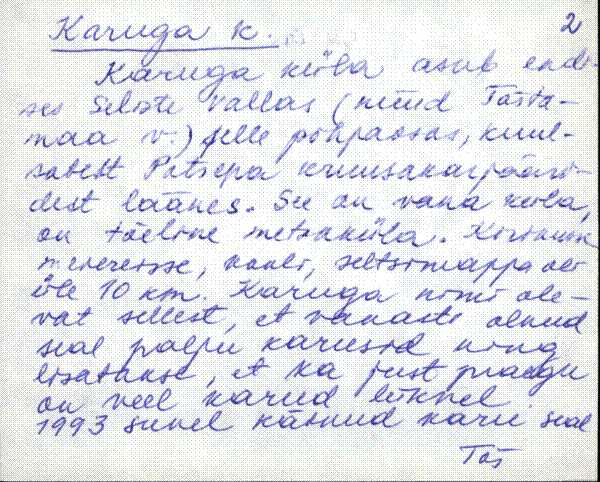 Karuga k.
2
Karuga küla asub endi-
ses Seliste vallas (nüüd Tõsta-
maa v.) selle põhjaosas, kuul-
sabest Potsepa kruusakarjääri-
dest läänes. See on vana küla,
on tõeline metsaküla. Kirikusse
meiereisse, kooli, seltsimajja oli
üle 10 km. Karuga nimi ole-
vat sellest, et vanasti olnud
seal palju karusid ning
lisatakse, et ka just praegu
on veel karud liikvel.
1993 suvel käinud karu seal
Tõs